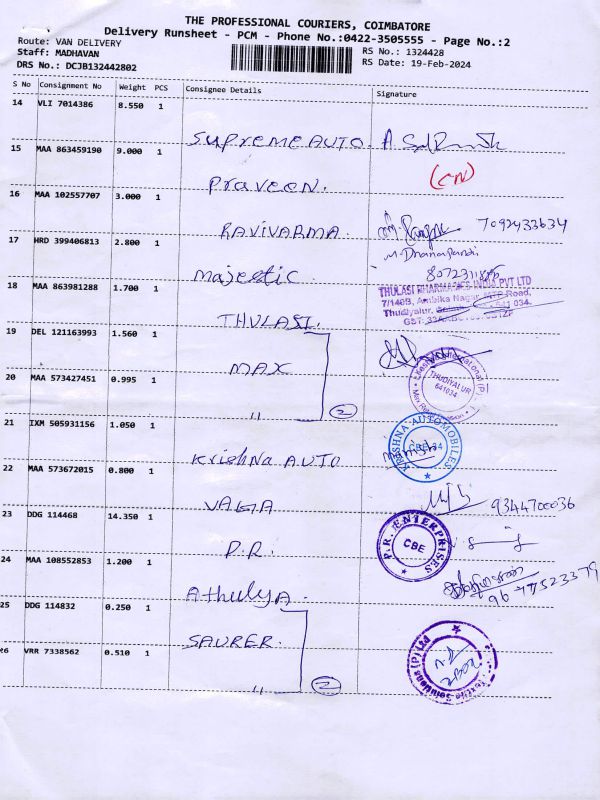 THE PROFESSIONAL COURIERS, COIMBATORE
Delivery Runsheet - PCM - Phone No.:0422-3505555 - Page No.:2
Route: VAN DELIVERY
Staff: MADHAVAN
DRS No.: DCJB132442802
RS No.: 1324428
RS Date: 19-Feb-2024
S No Consignment No Weight PCS Consignee Details Signature
14 VLI 7014386 8.550 1
SUPREME AUTO A
15 MAA 863459190 9.000 1
Praveen. (CN)
16 MAA 102557707 3.000 1
RAVIVARMA. 7092433634
17 HRD 399406813 2.800 1
M. Dhanapandi
Majestic
18 MAA 863981288 1.700 1
THULASI PHARMACIES INDIA PVT LTD
7/140B, Ambika Nagar, MTP Road,
Thudiyalur, 641 034.
THULASI.
19 DEL 121163993 1.560 1
MAX
THUDIYALUR
641034
20 MAA 573427451 0.995 1
" 2
21 IXM 505931156 1.050 1
Krishna AUTO
KRISHNA AUTOMOBILES
22 MAA 573672015 0.800 1
VAGA 9344700036
23 DDG 114468 14.350 1
P.R.
P.R. ENTERPRISES
CBE
24 MAA 108552853 1.200 1
Athulya. 9677523379
25 DDG 114832 0.250 1
SAURER.
26 VRR 7338562 0.510 1
Textile Solutions (P) Ltd
" 2